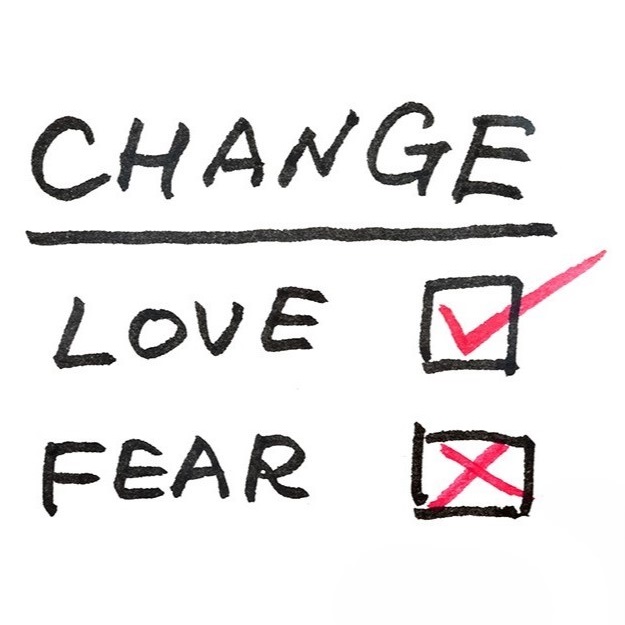 CHANGE
LOVE
FEAR